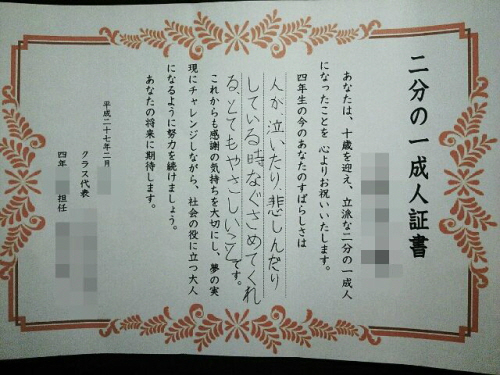 二分の一成人証書
あなたは、十歳を迎え、立派な二分の一成人
になったことを 心よりお祝いいたします。
四年生の今のあなたのすばらしさは
人が、泣いたり、悲しんだり
している時なぐさめてくれ
る、とてもやさしいところです。
これからも感謝の気持ちを大切にし、夢の実
現にチャレンジしながら、社会の役に立つ大人
になるように努力を続けましょう。
あなたの将来に期待します。
平成二十七年二月
クラス代表
四年 担任